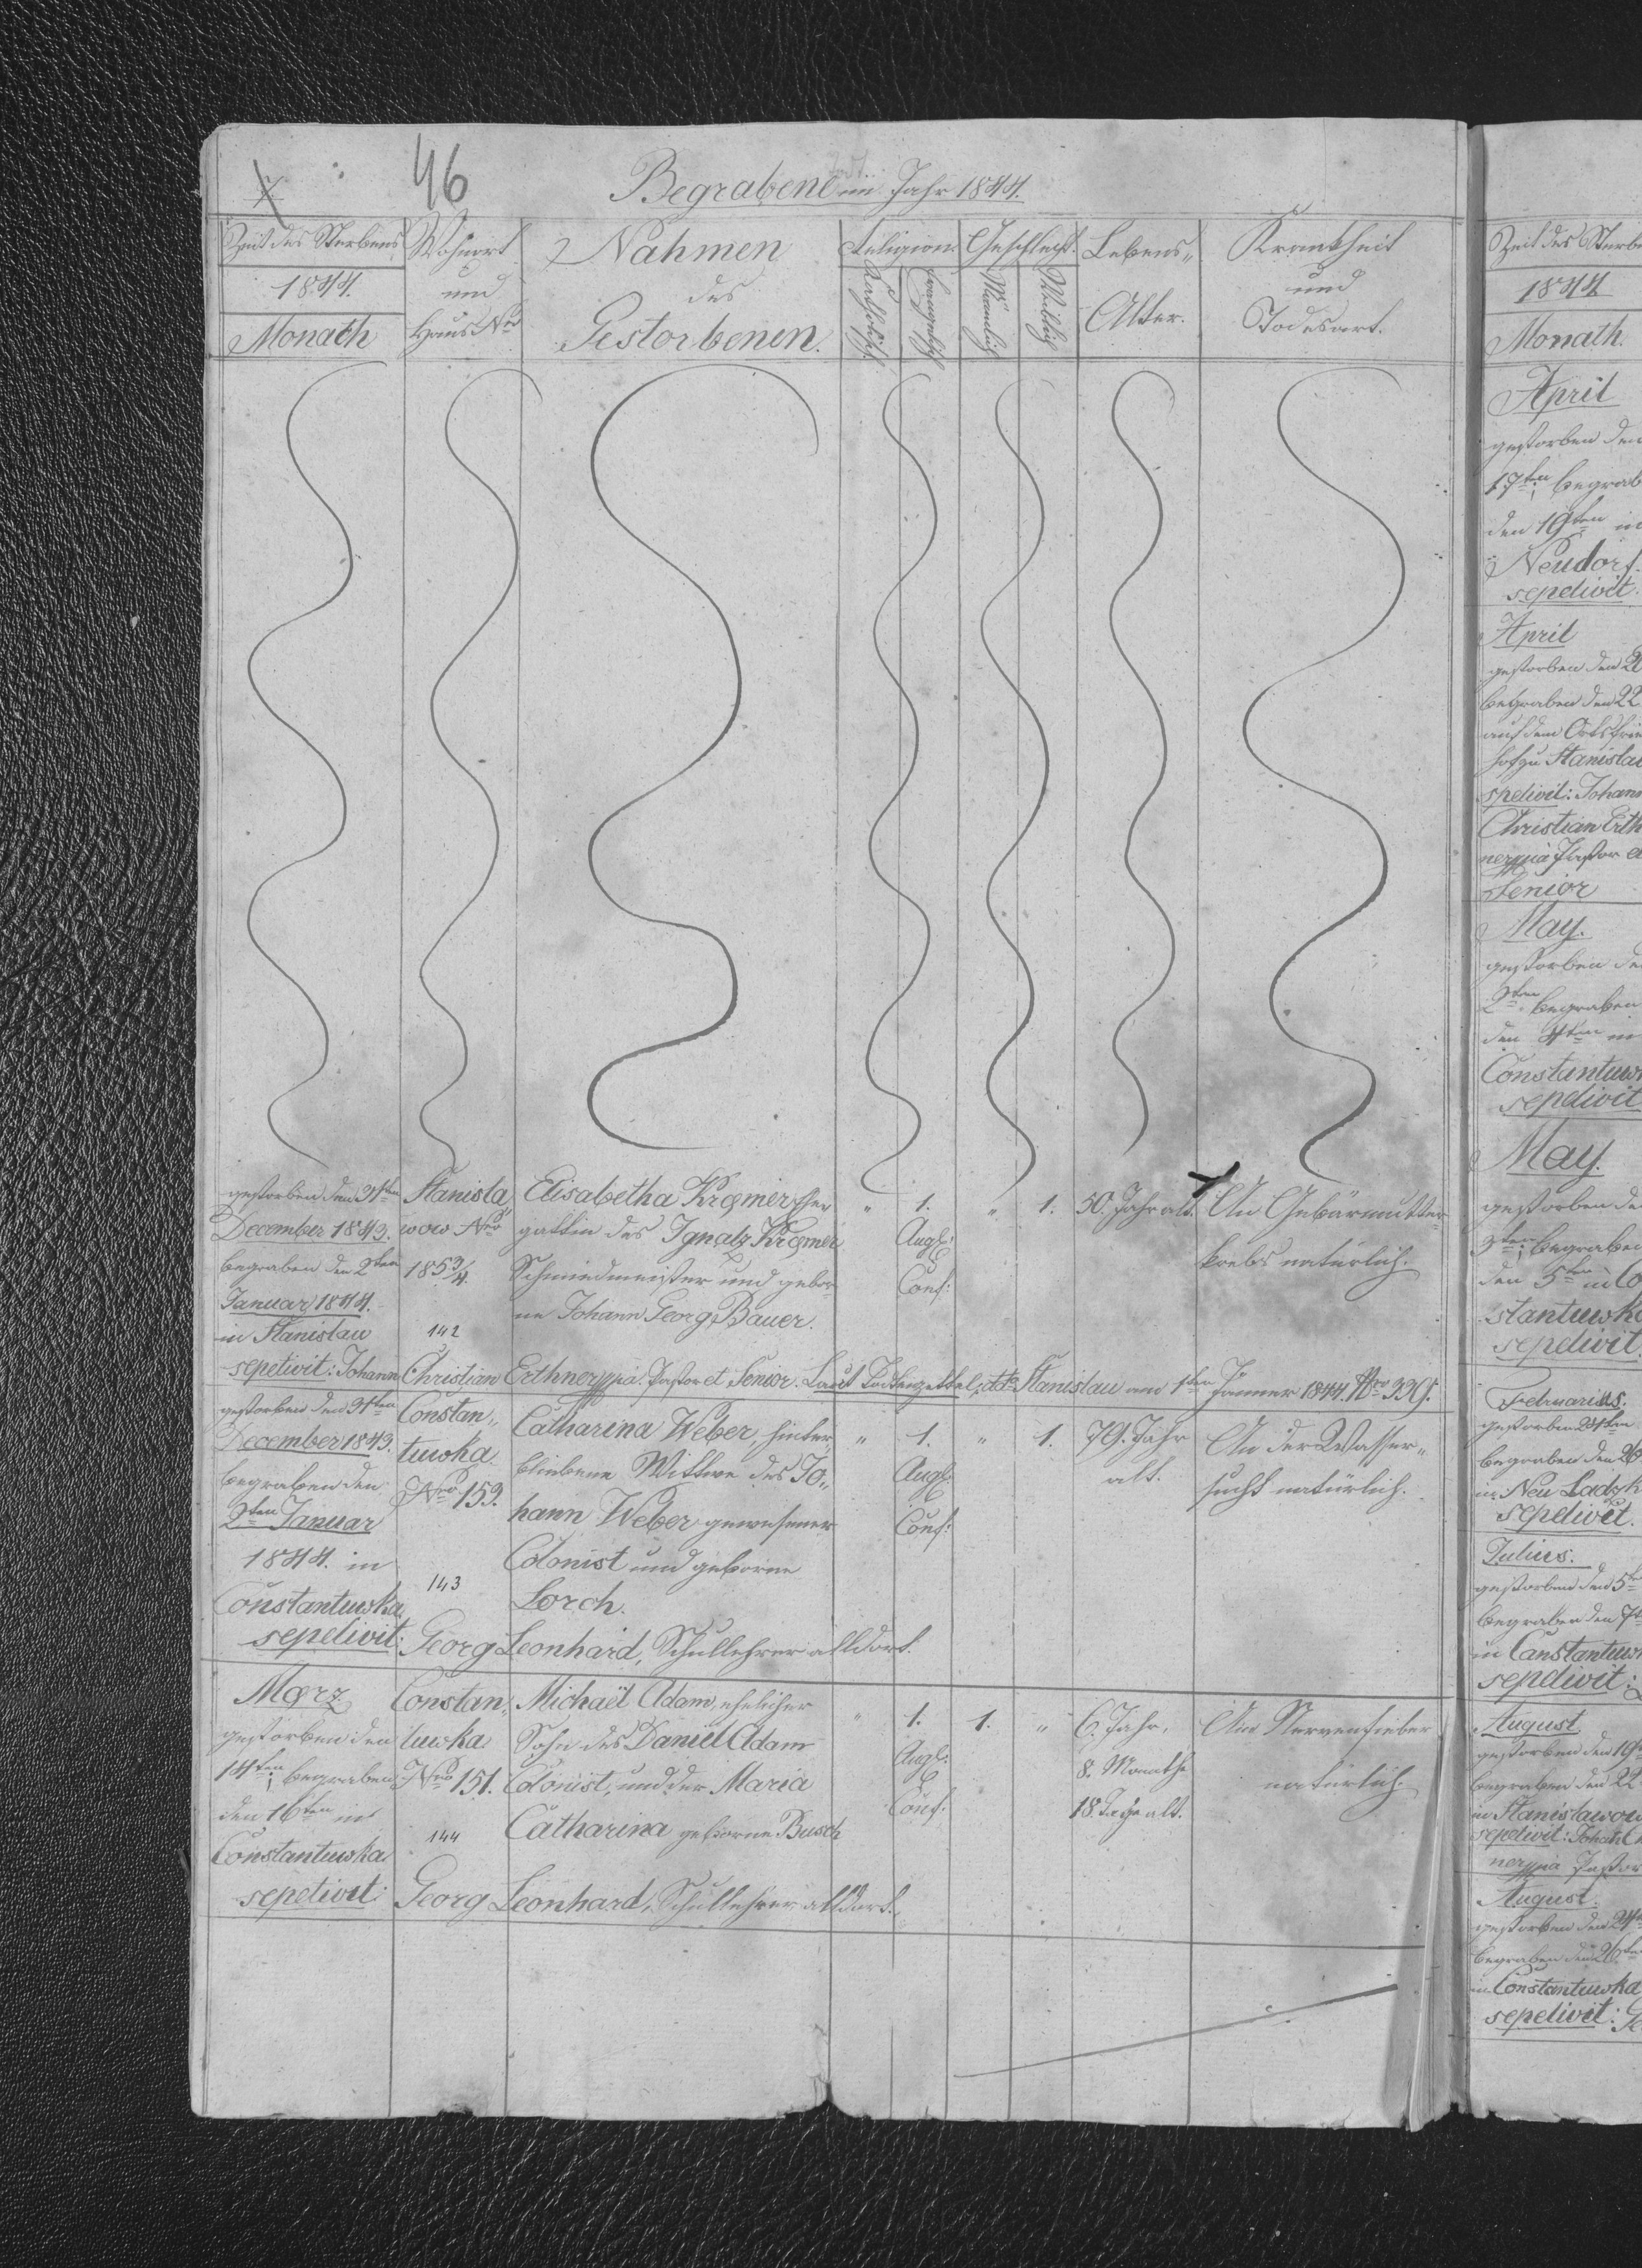 46
Begrabene im Jahr 1844.
Zeit des Sterbens
1844.
Monath
Wohnort
und
Haus Nro
Nahmen
des
Gestorbenen.
Religion.
Katholisch
Evangelisch
Geschlecht.
Männlich
Weiblich
Lebens„
Alter.
Krankheit
und
Todesart.
gestorben den 31ten
December 1843.
begraben den 2ten
Januar 1844.
in Stanislau
Stanisla„
wow Nro
185 3/4.
142
Elisabetha Kremer, Ehe
gattin des Ignatz Kremer
Schmiedmeister und gebor
ne Johann Georg Bauer.
„ 1. „ 1.
Augs:
Conf:
50. Jahr alt.
An Gebärmutter
krebs natürlich.
sepelivit: Johann Christian Erthner ppia Pastor et Senior. Laut Todtenzettel, dto Stanislau am 1ten Jänner 1844. Nro 339.
gestorben den 31ten
December 1843.
begraben den
2ten Januar
1844. in
Constantuwka
Constan„
tuwka.
Nro 159.
143
Catharina Weber, hinter„
bliebene Wittwe des Jo„
hann Weber gewesener
Colonist und geborne
Lorch.
„ 1. „ 1.
Augs:
Conf:
79. Jahr
alt.
An der Wasser„
sucht natürlich.
sepelivit: Georg Leonhard, Schullehrer alldort.
Maerz
gestorben den
14ten begraben
den 16ten in
Constantuwka
Constan„
tuwka
Nro 151.
144
Michaël Adam, ehelicher
Sohn des Daniel Adam
Colonist, und der Maria
Catharina geborne Busch
„ 1. 1. „
Augs:
Conf:
6. Jahr,
8. Monathe
18 Tage alt.
Am Nervenfieber
natürlich.
sepelivit: Georg Leonhard, Schullehrer alldort.
Zeit des Sterbe
1844
Monath.
April
gestorben den
17ten begrab
den 19ten in
Neudorf.
sepelivit.
April
gestorben den 2
begraben den 22
auf dem Ortsfried
hof zu Stanislau
spelivit: Johann
Christian Erth
ner ppia Pastor e
Senior
May.
gestorben de
2ten begraben
den 4ten in
Constantuw
sepelivit
May.
gestorben de
3ten begraben
den 5ten in Co
stantuwka
sepelivit.
Februarius.
gestorben 24ten
begraben den 26
in Neu Ladzk
sepelivit.
Julius.
gestorben den 5t
begraben den 7t
in Constantuw
sepelivit:
August
gestorben den 19
begraben den 22
in Stanislawow
sepelivit: Johann
ner ppia Pastor
August.
gestorben den 24
begraben den 26ten
in Constantuwka
sepelivit: Ge